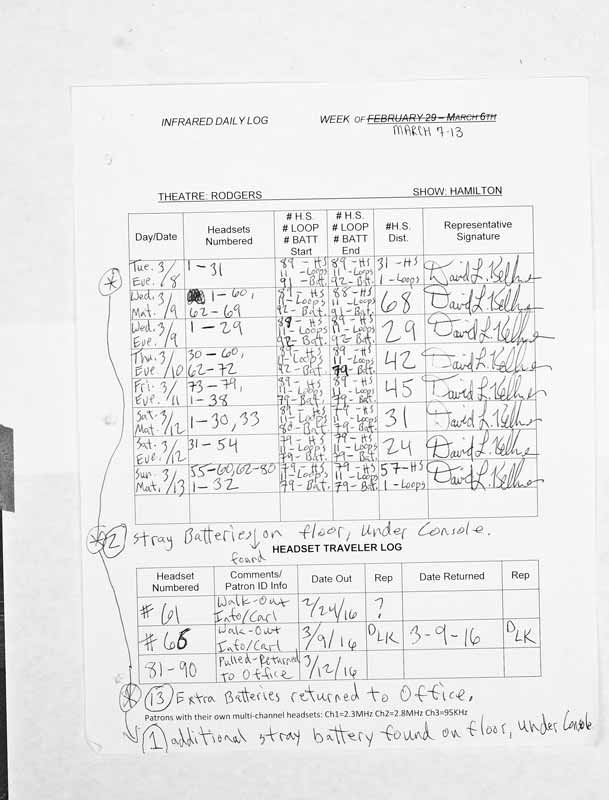 INFRARED DAILY LOG WEEK OF FEBRUARY 29 – MARCH 6TH
MARCH 7-13
THEATRE: RODGERS SHOW: HAMILTON
Day/Date Headsets Numbered # H.S. # LOOP # BATT Start # H.S. # LOOP # BATT End #H.S. Dist. Representative Signature
Tue. 3/8 Eve. 1-31 89-HS 11-Loops 91-Bat. 89-HS 11-Loops 92-Bat. 31-HS 1-Loops David L. Kellne
Wed. 3/9 Mat. 1-60, 62-69 89-HS 11-Loops 92-Bat. 88-HS 11-Loops 91-Bat. 68 David L. Kellne
Wed. 3/9 Eve. 1-29 88-HS 11-Loops 92-Bat. 89-HS 11-Loops 92-Bat. 29 David L. Kellne
Thu. 3/10 Eve. 30-60, 62-72 89-HS 11-Loops 92-Bat. 89-HS 11-Loops 79-Bat. 42 David L. Kellne
Fri. 3/11 Eve. 73-79, 1-38 89-HS 11-Loops 79-Bat. 89-HS 11-Loops 79-Bat. 45 David L. Kellne
Sat. 3/12 Mat. 1-30, 33 89-HS 11-Loops 80-Bat. 79-HS 11-Loops 79-Bat. 31 David L. Kellne
Sat. 3/12 Eve. 31-54 79-HS 11-Loops 79-Bat. 79-HS 11-Loops 79-Bat. 24 David L. Kellne
Sun. 3/13 Mat. 55-60, 62-80 1-32 79-HS 11-Loops 79-Bat. 79-HS 11-Loops 79-Bat. 57-HS 1-Loops David L. Kellne
* 2 stray Batteries found on floor, Under Console.
HEADSET TRAVELER LOG
Headset Numbered Comments/ Patron ID Info Date Out Rep Date Returned Rep
# 61 Walk-Out Info/Carl 2/24/16 ?
# 65 Walk-Out Info/Carl 3/9/16 DLK 3-9-16 DLK
81-90 Pulled-Returned to Office 3/12/16
* 13 Extra Batteries returned to Office.
Patrons with their own multi-channel headsets: Ch1=2.3MHz Ch2=2.8MHz Ch3=95KHz
1 additional stray battery found on floor, Under Console